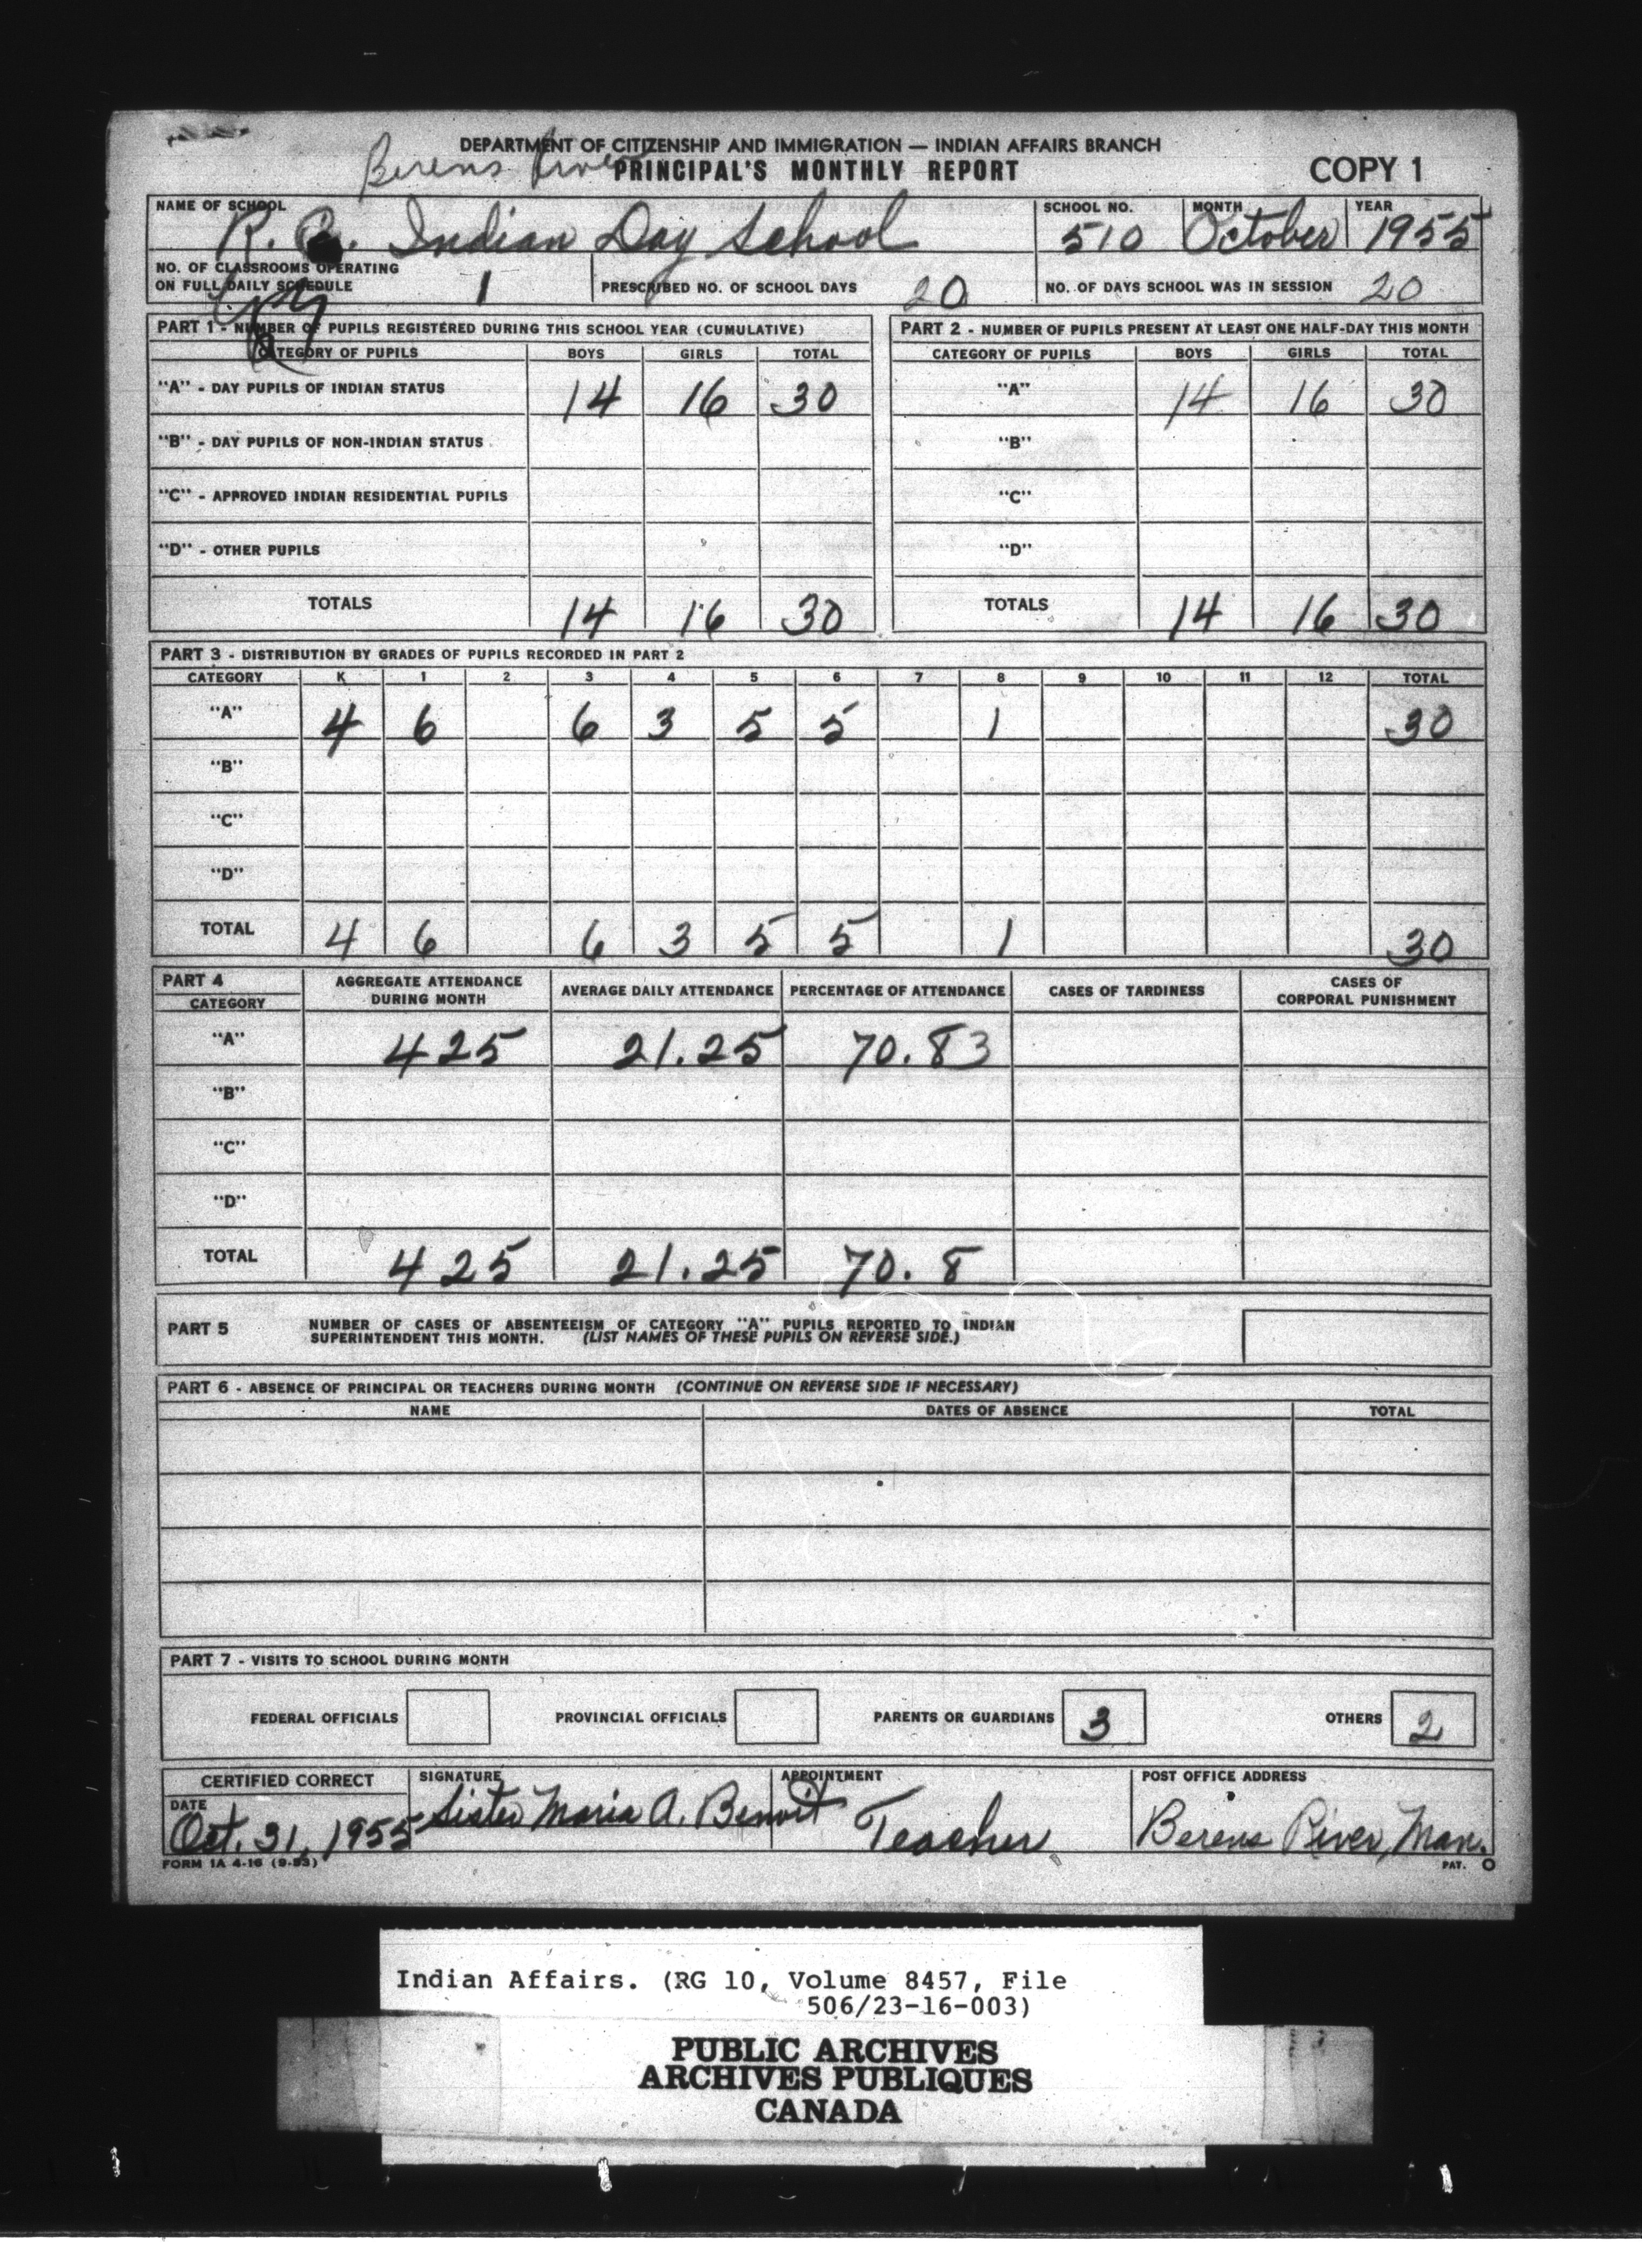 DEPARTMENT OF CITIZENSHIP AND IMMIGRATION — INDIAN AFFAIRS BRANCH
Berens River
PRINCIPAL'S MONTHLY REPORT
COPY 1
NAME OF SCHOOL R. C. Indian Day School SCHOOL NO. 510 MONTH October YEAR 1955
NO. OF CLASSROOMS OPERATING ON FULL DAILY SCHEDULE 1 PRESCRIBED NO. OF SCHOOL DAYS 20 NO. OF DAYS SCHOOL WAS IN SESSION 20
PART 1 - NUMBER OF PUPILS REGISTERED DURING THIS SCHOOL YEAR (CUMULATIVE)
CATEGORY OF PUPILS BOYS GIRLS TOTAL
"A" - DAY PUPILS OF INDIAN STATUS 14 16 30
"B" - DAY PUPILS OF NON-INDIAN STATUS
"C" - APPROVED INDIAN RESIDENTIAL PUPILS
"D" - OTHER PUPILS
TOTALS 14 16 30
PART 2 - NUMBER OF PUPILS PRESENT AT LEAST ONE HALF-DAY THIS MONTH
CATEGORY OF PUPILS BOYS GIRLS TOTAL
"A" 14 16 30
"B"
"C"
"D"
TOTALS 14 16 30
PART 3 - DISTRIBUTION BY GRADES OF PUPILS RECORDED IN PART 2
CATEGORY K 1 2 3 4 5 6 7 8 9 10 11 12 TOTAL
"A" 4 6 6 3 5 5 1 30
"B"
"C"
"D"
TOTAL 4 6 6 3 5 5 1 30
PART 4
CATEGORY AGGREGATE ATTENDANCE DURING MONTH AVERAGE DAILY ATTENDANCE PERCENTAGE OF ATTENDANCE CASES OF TARDINESS CASES OF CORPORAL PUNISHMENT
"A" 425 21.25 70.83
"B"
"C"
"D"
TOTAL 425 21.25 70.8
PART 5 NUMBER OF CASES OF ABSENTEEISM OF CATEGORY "A" PUPILS REPORTED TO INDIAN
SUPERINTENDENT THIS MONTH. (LIST NAMES OF THESE PUPILS ON REVERSE SIDE.)
PART 6 - ABSENCE OF PRINCIPAL OR TEACHERS DURING MONTH (CONTINUE ON REVERSE SIDE IF NECESSARY)
NAME DATES OF ABSENCE TOTAL
PART 7 - VISITS TO SCHOOL DURING MONTH
FEDERAL OFFICIALS PROVINCIAL OFFICIALS PARENTS OR GUARDIANS 3 OTHERS 2
CERTIFIED CORRECT SIGNATURE APPOINTMENT POST OFFICE ADDRESS
DATE
Oct. 31, 1955 Sister Maria A. Benoit Teacher Berens River, Man.
FORM 1A 4-16 (9-53) PAT. O
Indian Affairs. (RG 10, Volume 8457, File
506/23-16-003)
PUBLIC ARCHIVES
ARCHIVES PUBLIQUES
CANADA